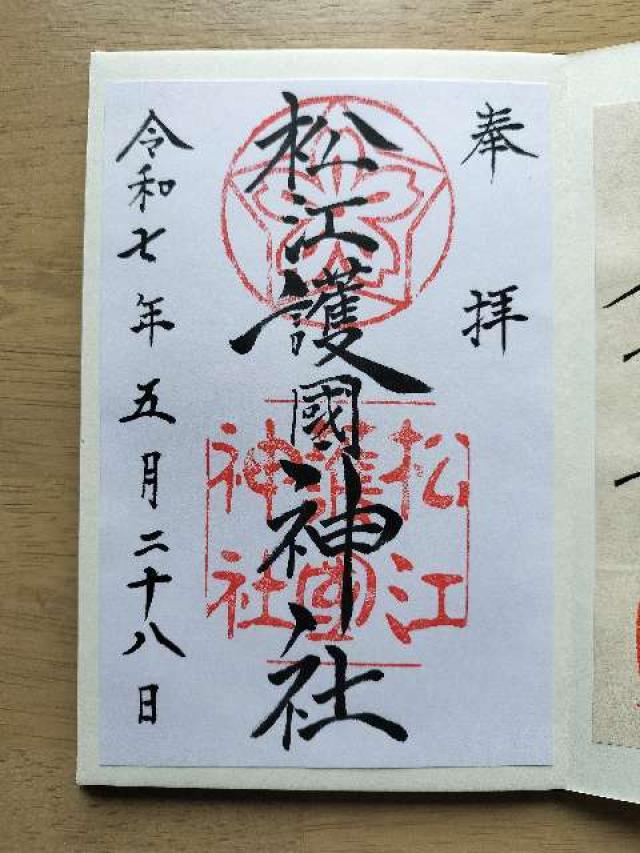 奉拝
松江護國神社
松江
護國
神社
令和七年五月二十八日